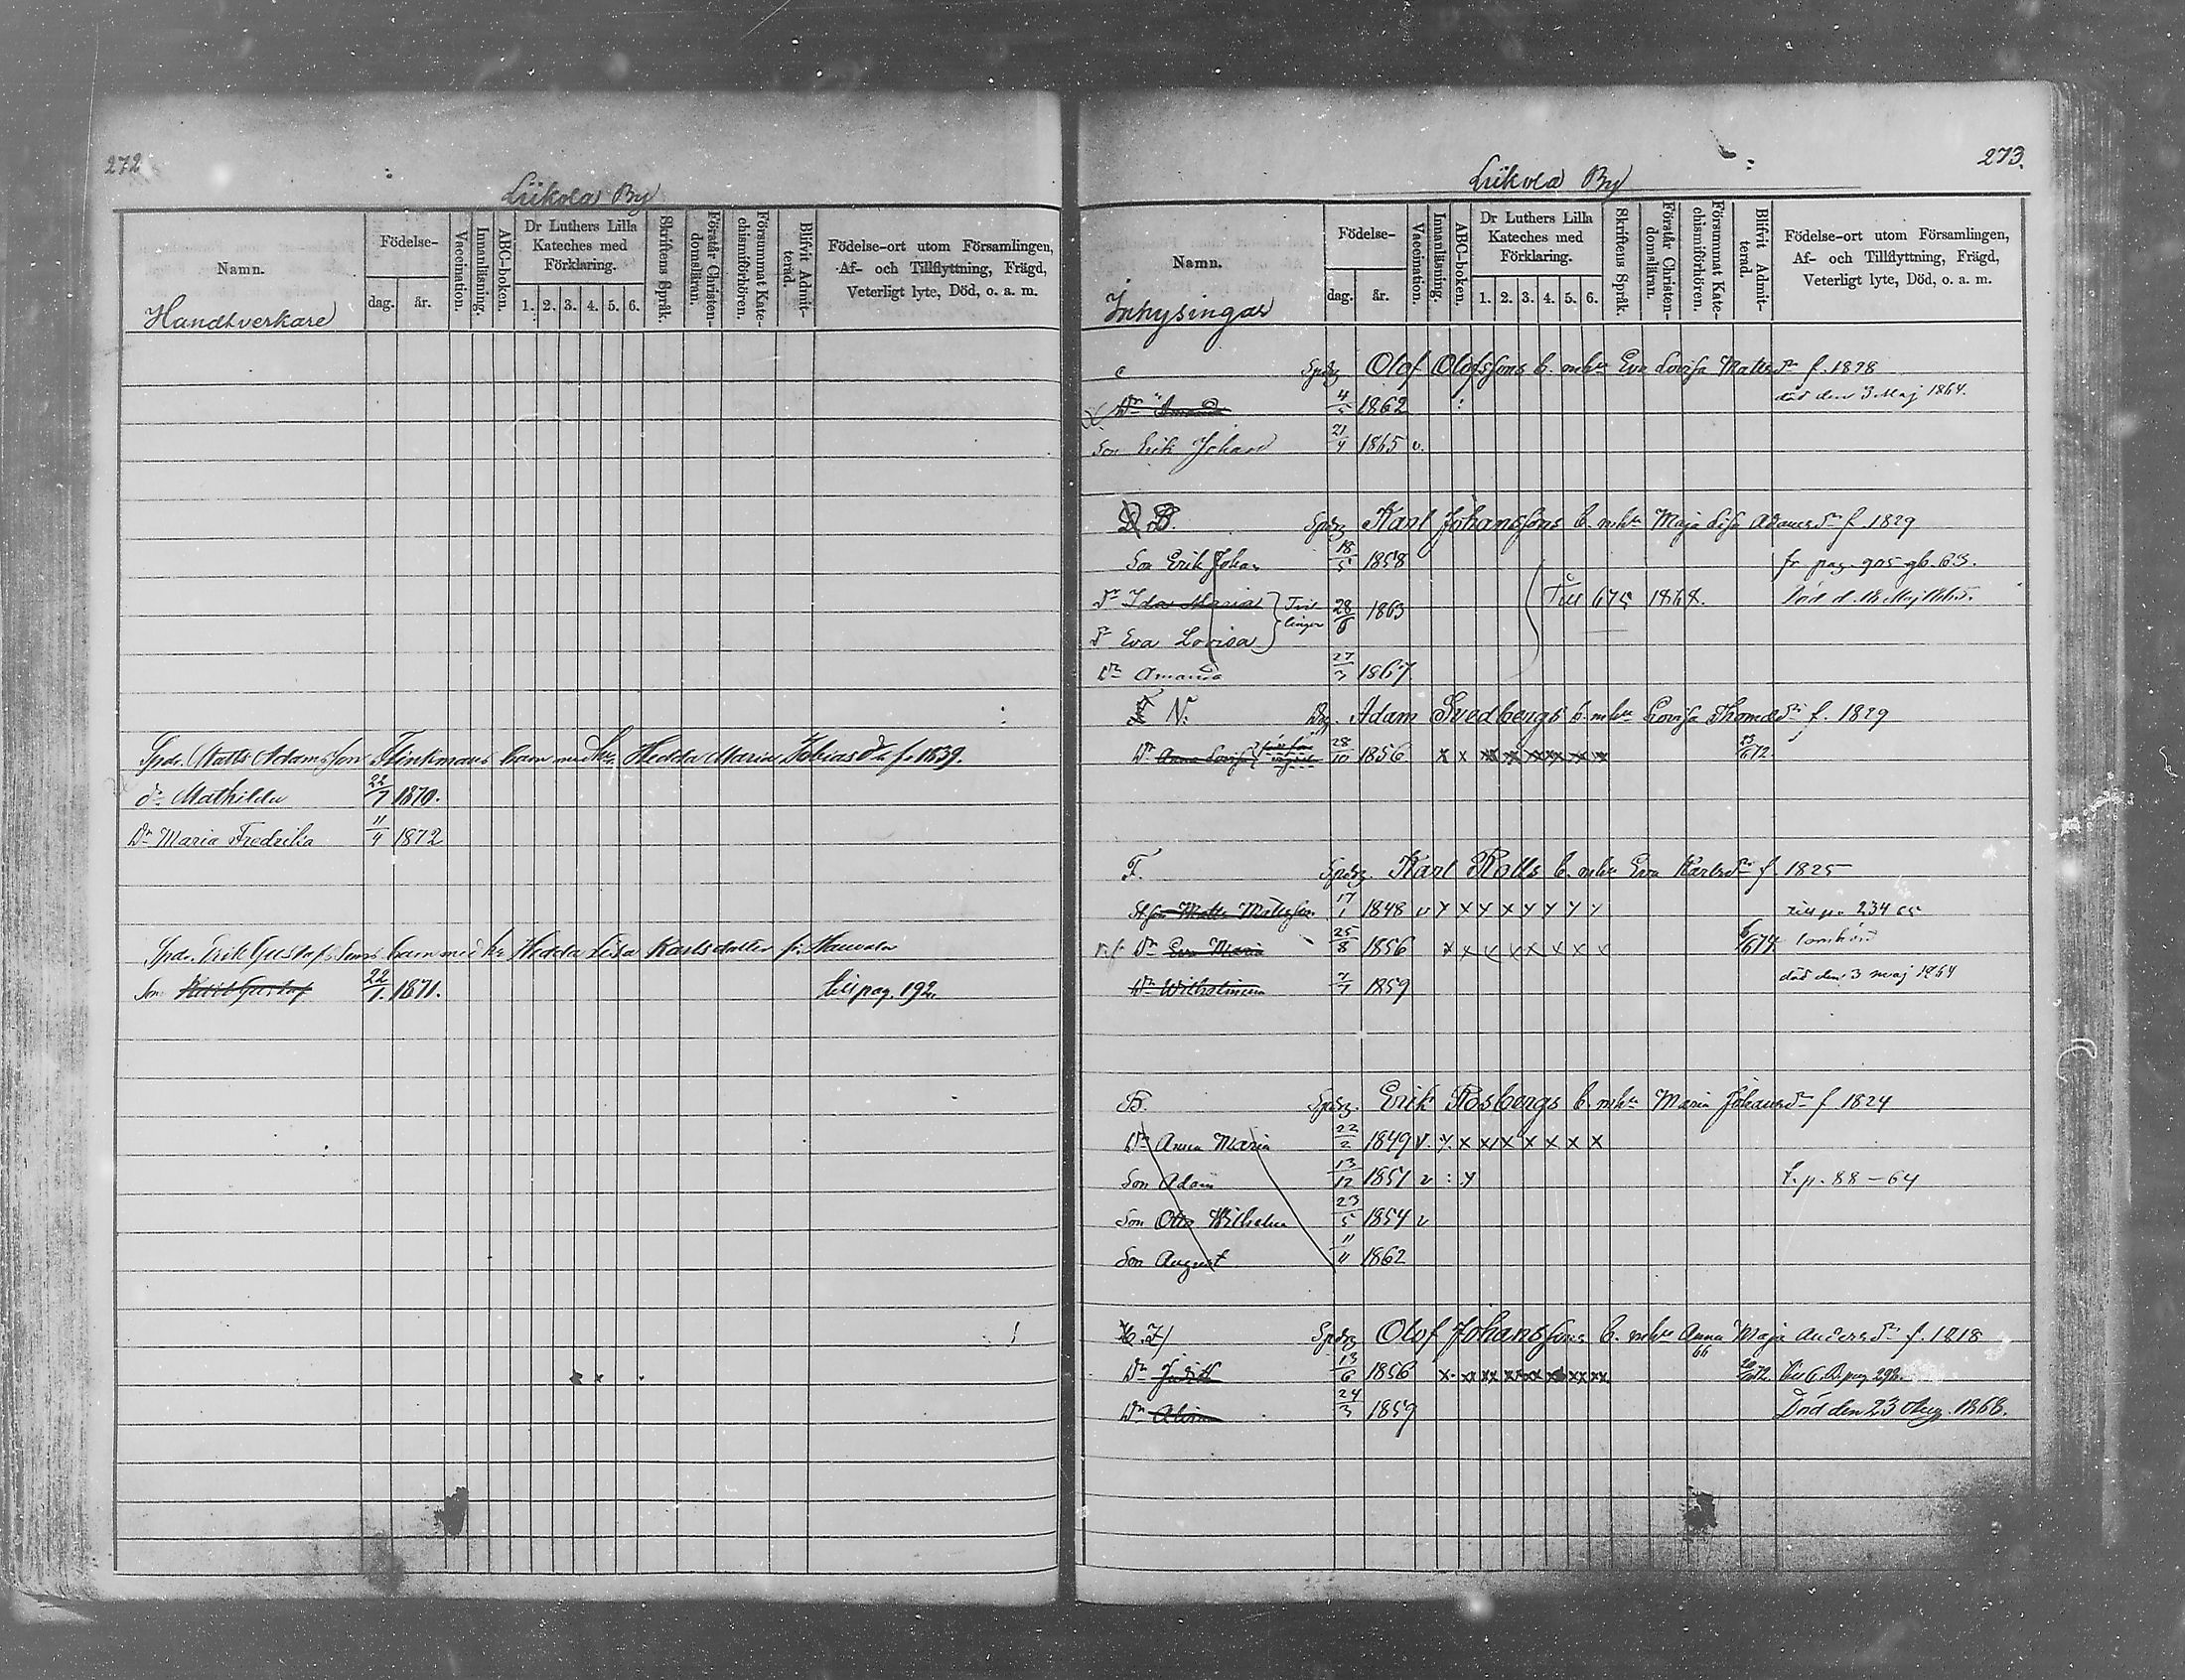 272
Liikola By
Namn.
Födelse-
dag.
år.
Vaccination.
Innanläsning.
ABC-boken.
Dr Luthers Lilla Kateches med Förklaring.
1. 2. 3. 4. 5. 6.
Skriftens Språk.
Förstår Christendomsläran.
Försummat Katechismiförhören.
Blifvit Admitterad.
Födelse-ort utom Församlingen,
Af- och Tillflyttning, Frägd,
Veterligt lyte, Död, o. a. m.
Handtverkare
Spdr. Matts Adamsson Flinkmans barn med hu Hedda Maria Tobiasdr f. 1839.
dr Mathilda 22/7 1870.
Dr Maria Fredrika 11/4 1872
Spdr. Erik Gustafssons barn med hu Hedda Lisa Karlsdotter fr.
Son Karl Gustaf 22/1. 1871. till pag. 192.
273.
Liikola By
Namn.
Födelse-
dag.
år.
Vaccination.
Innanläsning.
ABC-boken.
Dr Luthers Lilla Kateches med Förklaring.
1. 2. 3. 4. 5. 6.
Skriftens Språk.
Förstår Christendomsläran.
Försummat Katechismiförhören.
Blifvit Admitterad.
Födelse-ort utom Församlingen,
Af- och Tillflyttning, Frägd,
Veterligt lyte, Död, o. a. m.
Inhysingar
c Spdrg Olof Olofssons b. m hu Eva Lovisa Mattsdr f. 1828
Dr Amanda 4/5 1862 död den 3 Maj 1864.
Son Erik Johan 21/4 1865 v.
B. Spdrg Karl Johanssons b. m hu Maja Lisa Adamsdr f. 1829
Son Erik Johan 18/5 1858 fr pag. 905 gb. 63.
dr Ida Maria Tvillingar 28/6 1863 Till 675 1868. Död d. 18 Maj
dr Eva Lovisa
Dr Amanda 27/3 1867
N. Adam Svedbergs b. m hu Lovisa Thomasdr f. 1829
Dr Anna Lovisa 28/10 1856 x x x x x x x x x
F. Spdrg. Karl Rolls b. m hu Eva Karlsdr f. 1825
Stfson Matts Mattsson 17/1 1848 v y x y x y y y y till p. 234 65
Dr Eva Maria 25/8 1856 x x x x x x x x
Dr Wilhelmina 7/7 1859 död den 3 maj 1864
B. Spdrg. Erik Rosbergs b. m hu Maria Johansdr f 1824
Dr Anna Maria 22/2 1849 v. y. x x x x x x x
Son Adam 13/12 1851 v : y t. p. 88-64
Son Otto Wilhelm 23/5 1854 v
Son August 11/11 1862
Spdrg Olof Johanssons b. m hu Anna Maja Andersdr f. 1818
66
Dr Judith 13/6 1856 x. xx xx x x x x x xx xx
Dr Alvina 24/3 1859 Död den 23 Aug. 1868.